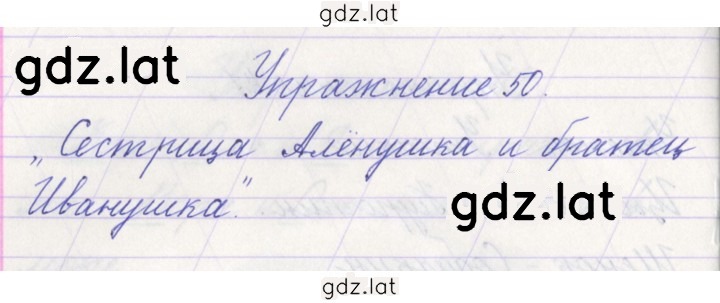 gdz.lat
gdz.lat
Упражнение 50.
„Сестрица Алёнушка и братец
Иванушка".
gdz.lat
gdz.lat